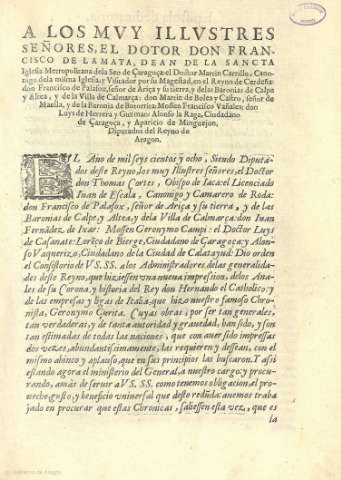 A LOS MVY ILLVSTRES
SEÑORES, EL DOTOR DON FRAN-
CISCO DE LAMATA, DEAN DE LA SANCTA
Iglesia Metropolitana dela Seo de Çaragoça: el Doctor Martin Carrillo, Cano-
nigo dela misma Iglesia, y Visitador por su Magestad, en el Reyno de Cerdeña:
don Francisco de Palafox, señor de Ariça y su tierra, y de las Baronias de Calpe
y Altea, y de la Villa de Calmarça: don Martin de Bolea y Castro, señor de
Maella, y de la Baronia de Botorrita: Mossen Francisco Vañales: don
Luys de Herrera y Guzman: Alonso la Raga, Ciudadano
de Çaragoça, y Aparicio de Minguejon,
Diputados del Reyno de
Aragon.
EL Año de mil seys cientos y ocho, Siendo Diputa-
dos deste Reyno, los muy Illustres señores, el Doctor
don Thomas Cortes, Obispo de Iaca: el Licenciado
Iuan de Escala, Canonigo y Camarero de Roda:
don Francisco de Palafox, señor de Ariça y su tierra, y de las
Baronias de Calpe, y Altea, y dela Villa de Calmarça: don Iuan
Fernãdez de Ixar: Mossen Geronymo Campi: el Doctor Luys
de Casanate: Lorẽço de Bierge, Ciudadano de Çaragoça: y Alon-
so Vaquerizo, Ciudadano de la Ciudad de Calatayud: Dio orden
el Consistorio de VS. SS. a los Administradores, delas generalida-
des deste Reyno, que hiziessen vna nueua impression, delos Ana-
les de su Corona, y historia del Rey don Hernando el Catholico: y
de las empresas y ligas de Italia, que hizo nuestro famoso Chro-
nista, Geronymo Çurita. Cuyas obras, por ser tan generales,
tan verdaderas, y de tanta autoridad y grauedad, han sido, y son
tan estimadas de todas las naciones, que con auer sido impressas
dos vezes, abundantissimamente, las requieren y dessean, con el
mismo ahinco y aplauso, que en sus principios las buscaron. Y assi
estando agora el ministerio del General, a nuestro cargo: y procu-
rando, a mas de seruir a VS. SS. como tenemos obligacion, al pro-
uecho, gusto, y beneficio vniuersal que desto redũda: auemos traba
jado en procurar que estas Chronicas, saliessen esta vez, que es
la